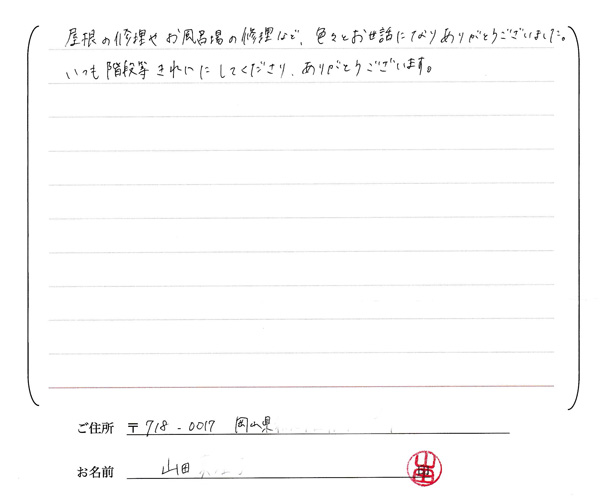 屋根の修理やお風呂場の修理など、色々とお世話になりありがとうございました。
いつも階段等きれいにしてくださり、ありがとうございます。
ご住所 〒718-0017 岡山県
お名前 山田